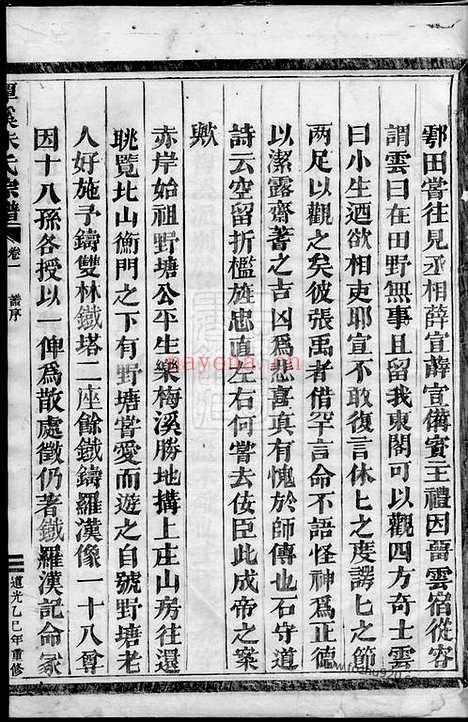 鄠田嘗往見丞相薛宣薛宣備賓主禮因畱雲宿從容
謂雲曰在田野無事且留我東閣可以觀四方奇士雲
曰小生迺欲相吏耶宣不敢復言休匕之度諤匕之節
两足以觀之矣彼張禹者借罕言命不語怪神為正德
以潔露齋蓍之吉凶為悲喜真有愧於師傅也石守道
詩云空留折檻旌忠直左右何嘗去佞臣此成帝之案
歟
赤岸始祖野塘公平生樂梅溪勝地搆上庄山房往還
眺覽北山衡門之下有野塘嘗愛而遊之自號野塘老
人好施予鑄雙林鐵塔二座餘鐵鑄羅漢像一十八尊
因十八孫各授以一俾爲散處徵仍著鐵羅漢記命冢
朱氏宗譜
卷一
譜序
道光乙巳年重修
nayona.cn